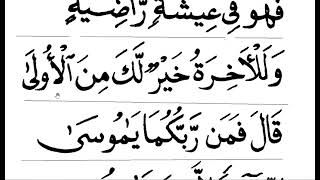 فَهُوَ فِي عِيشَةٍ رَّاضِيَةٍ
وَلَلْأَخِرَةُ خَيْرٌ لَّكَ مِنَ ٱلْأُولَىٰ
قَالَ فَمَن رَّبُّكُمَا يَٰمُوسَىٰ